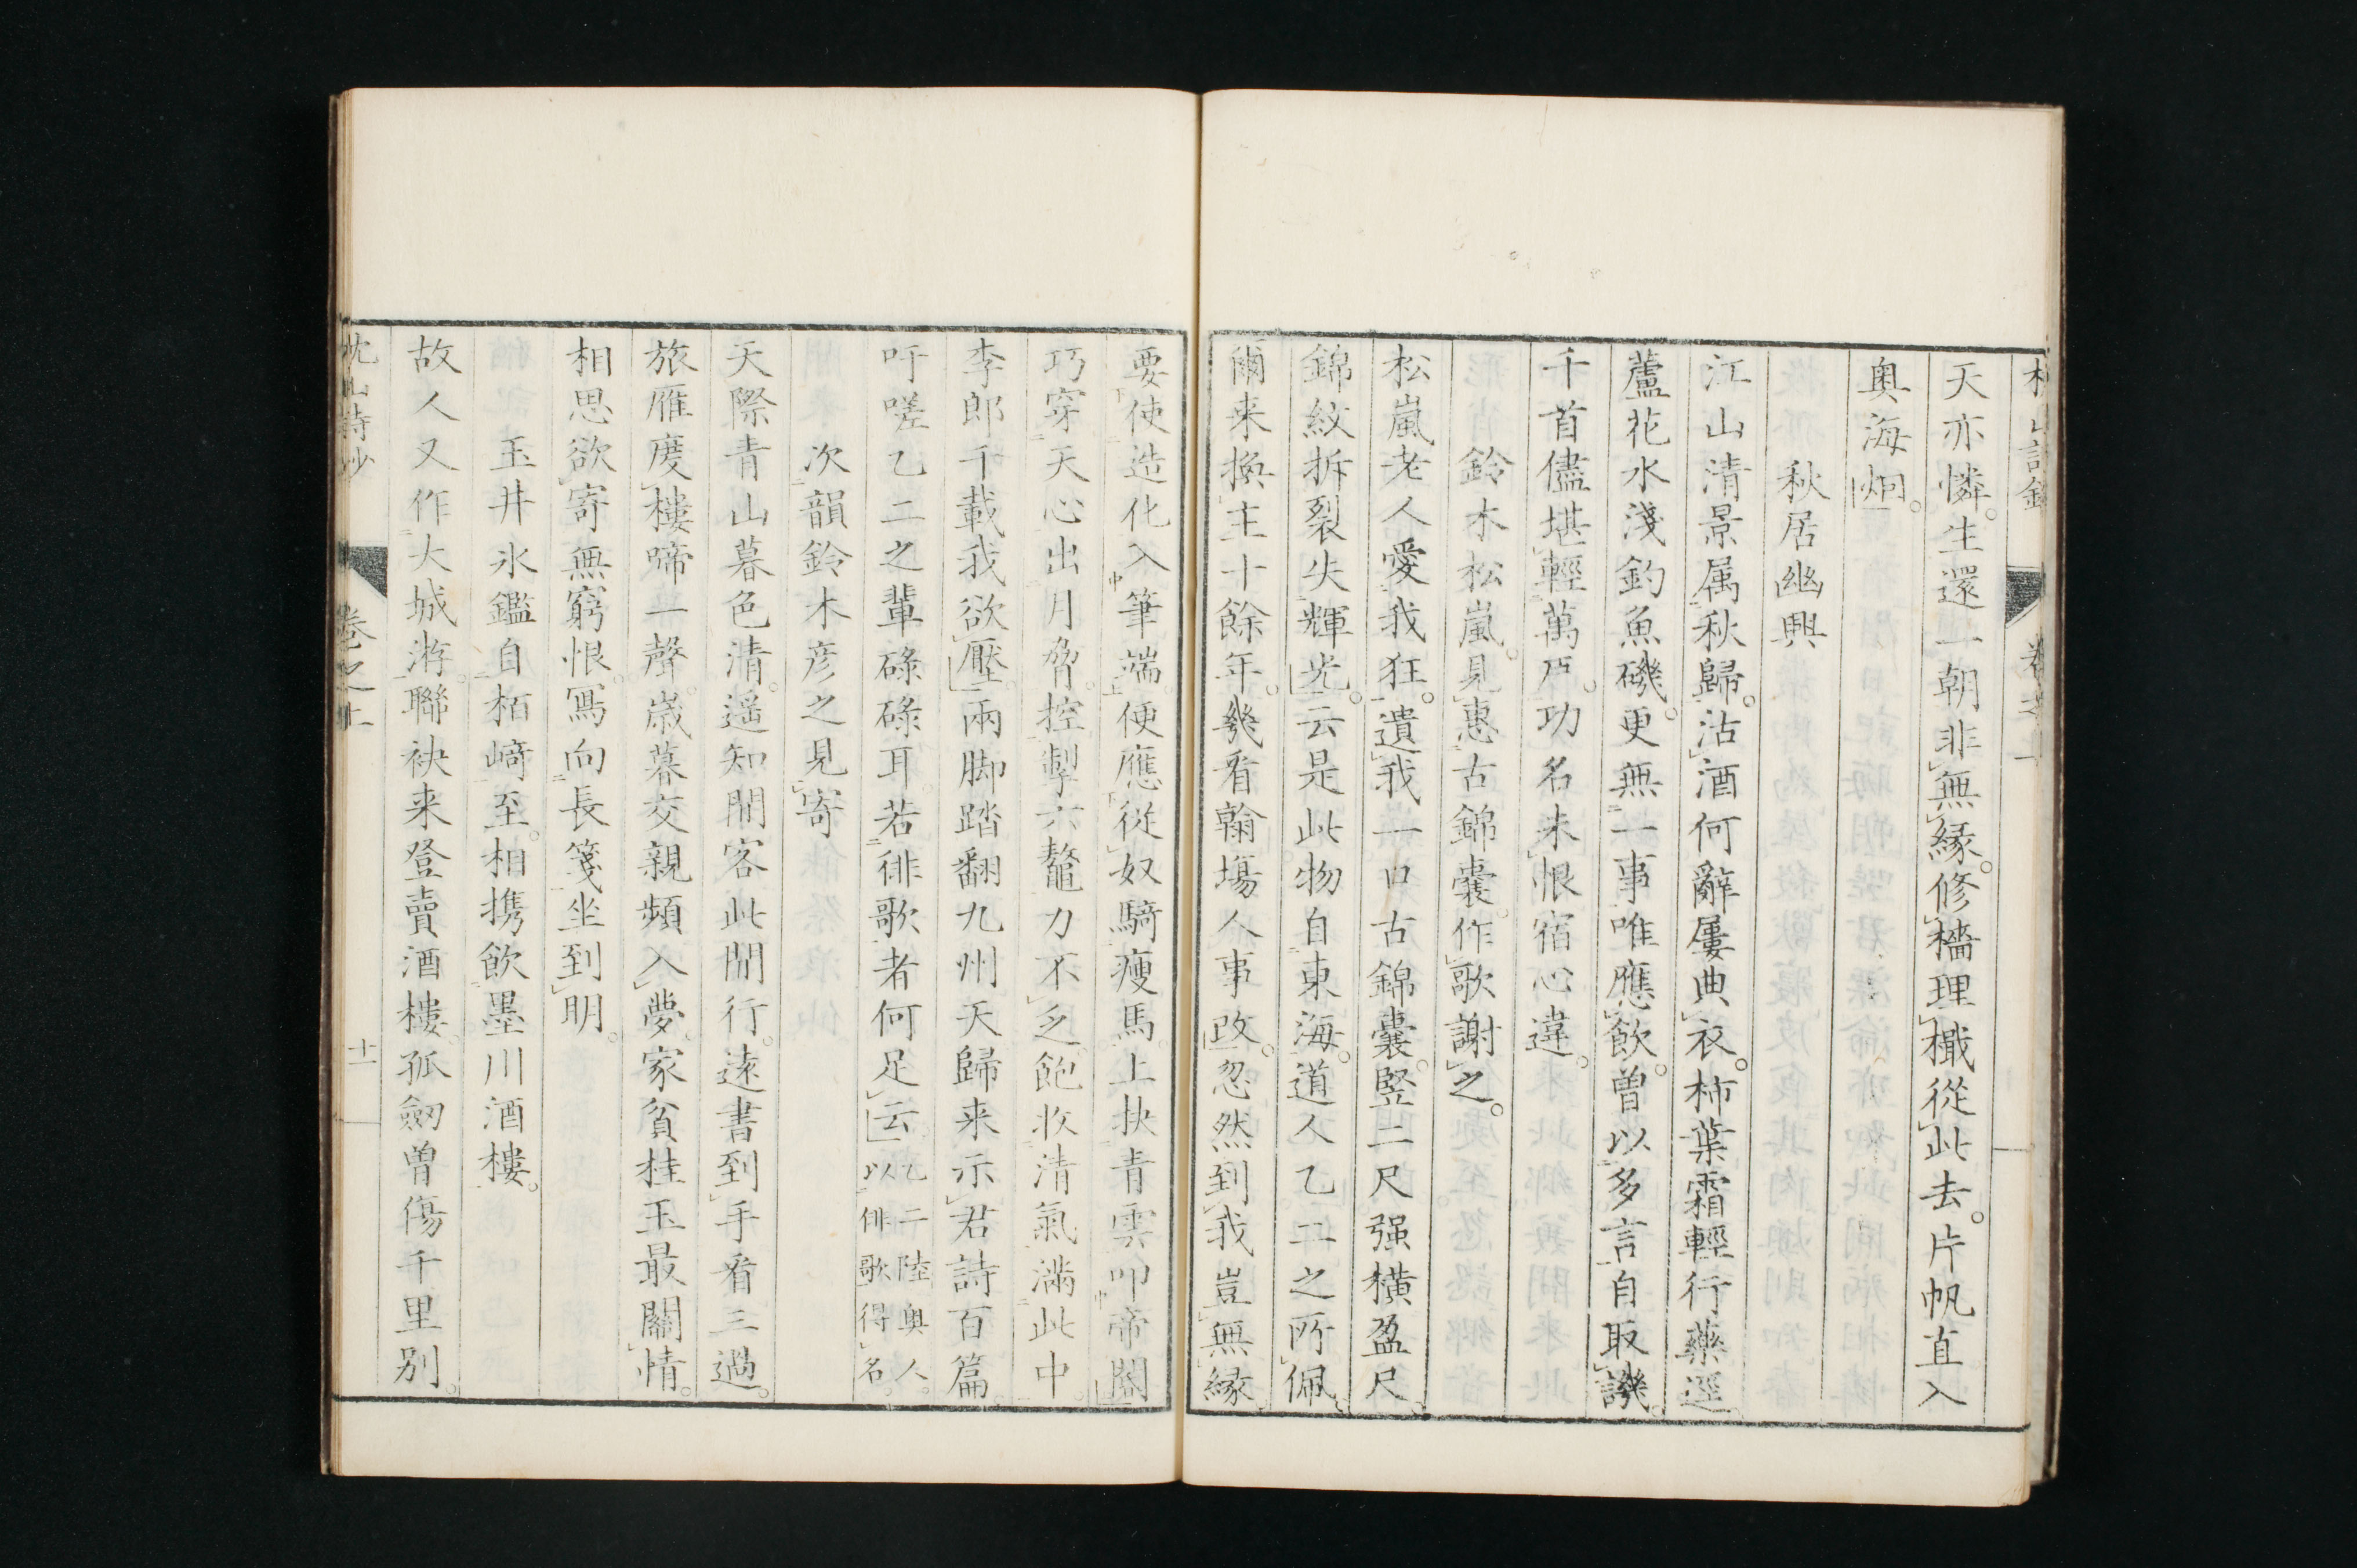 天亦憐。生還一朝非無縁。修檣理檝從此去。片帆直入
奥海烟。
秋居幽興
江山清景属秋歸。沽酒何辭屢典衣。柿葉霜輕行藥逕。
蘆花水淺釣魚磯。更無一事唯應飲。曽以多言自取譏。
千首儘堪輕萬戸。功名未恨宿心違。
鈴木松嵐見惠古錦嚢。作歌謝之。
松嵐老人愛我狂。遺我一口古錦嚢。竪二尺强橫盈尺。
錦紋拆裂失輝光。云是此物自東海。道人乙二之所佩。
爾来換主十餘年。幾看翰塲人事改。忽然到我豈無縁。
要使造化入筆端。便應從奴騎瘦馬。上抉青雲叩帝閽
巧穿天心出月脅。控掣六鼇力不乏。飽收清氣滿此中。
李郎千載我欲壓。兩脚踏翻九州天。歸来示君詩百篇。
吁嗟乙二之輩碌碌耳。若徘歌者何足云。乙二陸奥人。以俳歌得名。
次韻鈴木彦之見寄
天際青山暮色清。遥知閒客此閒行。遠書到手看三過。
旅雁度樓啼一聲。歳暮交親頻入夢。家貧桂玉最關情。
相思欲寄無窮恨。寫向長箋坐到明。
玉井氷鑑自栢﨑至。相携飲墨川酒樓。
故人又作大城游。聯袂来登賣酒樓。孤劒曽傷千里别。
枕山詩鈔
卷之上
十一